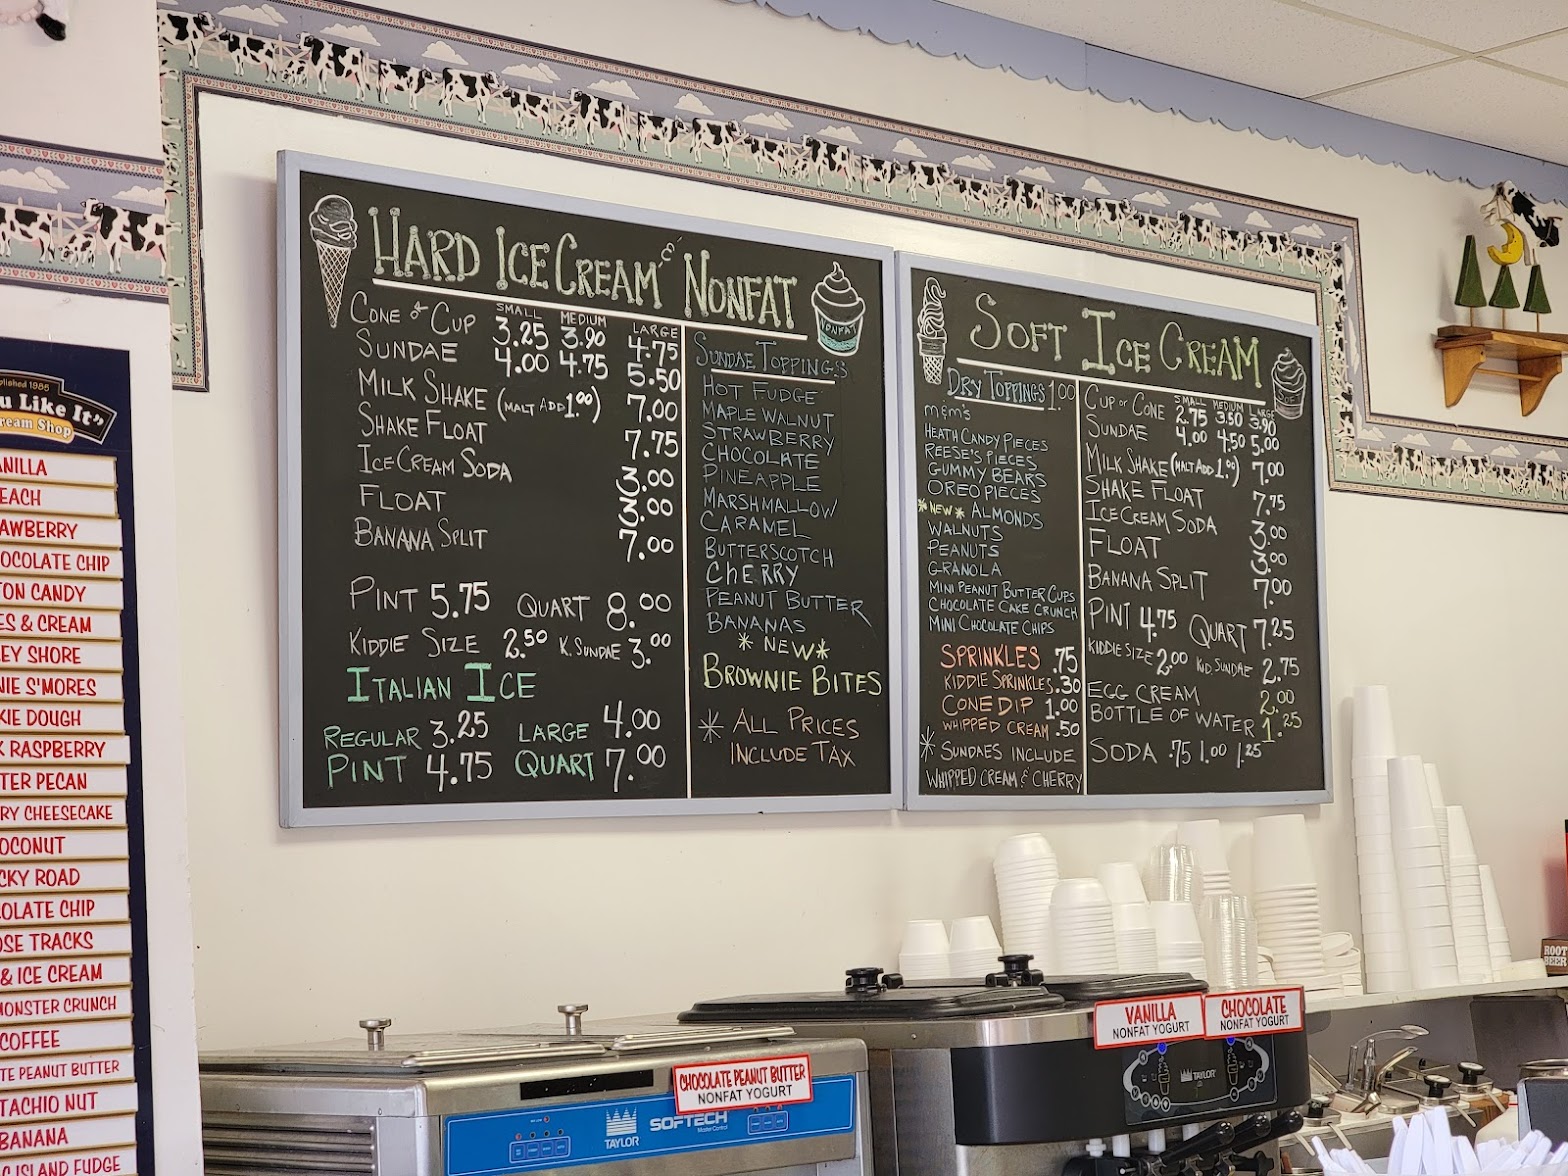 HARD ICE CREAM & NONFAT
SMALL MEDIUM LARGE
CONE or CUP 3.25 3.90 4.75
SUNDAE 4.00 4.75 5.50
MILK SHAKE (MALT ADD 1.00) 7.00
SHAKE FLOAT 7.75
ICE CREAM SODA 3.00
FLOAT 3.00
BANANA SPLIT 7.00
PINT 5.75 QUART 8.00
KIDDIE SIZE 2.50 K. SUNDAE 3.00
ITALIAN ICE
REGULAR 3.25 LARGE 4.00
PINT 4.75 QUART 7.00
SUNDAE TOPPINGS
HOT FUDGE
MAPLE WALNUT
STRAWBERRY
CHOCOLATE
PINEAPPLE
MARSHMALLOW
CARAMEL
BUTTERSCOTCH
CHERRY
PEANUT BUTTER
BANANAS
* NEW *
BROWNIE BITES
* ALL PRICES
INCLUDE TAX
NONFAT
SOFT ICE CREAM
DRY TOPPINGS 1.00
M&M'S
HEATH CANDY PIECES
REESE'S PIECES
GUMMY BEARS
OREO PIECES
*NEW* ALMONDS
WALNUTS
PEANUTS
GRANOLA
MINI PEANUT BUTTER CUPS
CHOCOLATE CAKE CRUNCH
MINI CHOCOLATE CHIPS
SPRINKLES .75
KIDDIE SPRINKLES .50
CONE DIP 1.00
WHIPPED CREAM .50
* SUNDAES INCLUDE
WHIPPED CREAM & CHERRY
SMALL MEDIUM LARGE
CUP or CONE 2.75 3.50 3.90
SUNDAE 4.00 4.50 5.00
MILK SHAKE (MALT ADD 1.00) 7.00
SHAKE FLOAT 7.75
ICE CREAM SODA 3.00
FLOAT 3.00
BANANA SPLIT 7.00
PINT 4.75 QUART 7.25
KIDDIE SIZE 2.00 KID SUNDAE 2.75
EGG CREAM 2.00
BOTTLE OF WATER 1.25
SODA .75 1.00 1.25
plished 1985
u Like It's
ream Shop
ANILLA
EACH
RAWBERRY
HOCOLATE CHIP
TON CANDY
ES & CREAM
EY SHORE
NIE S'MORES
KIE DOUGH
K RASPBERRY
TER PECAN
RY CHEESECAKE
OCONUT
CKY ROAD
OLATE CHIP
OSE TRACKS
& ICE CREAM
MONSTER CRUNCH
COFFEE
TE PEANUT BUTTER
TACHIO NUT
BANANA
ISLAND FUDGE
CHOCOLATE PEANUT BUTTER
NONFAT YOGURT
TAYLOR
SOFTECH
VANILLA
NONFAT YOGURT
CHOCOLATE
NONFAT YOGURT
TAYLOR
ROOT
BEER